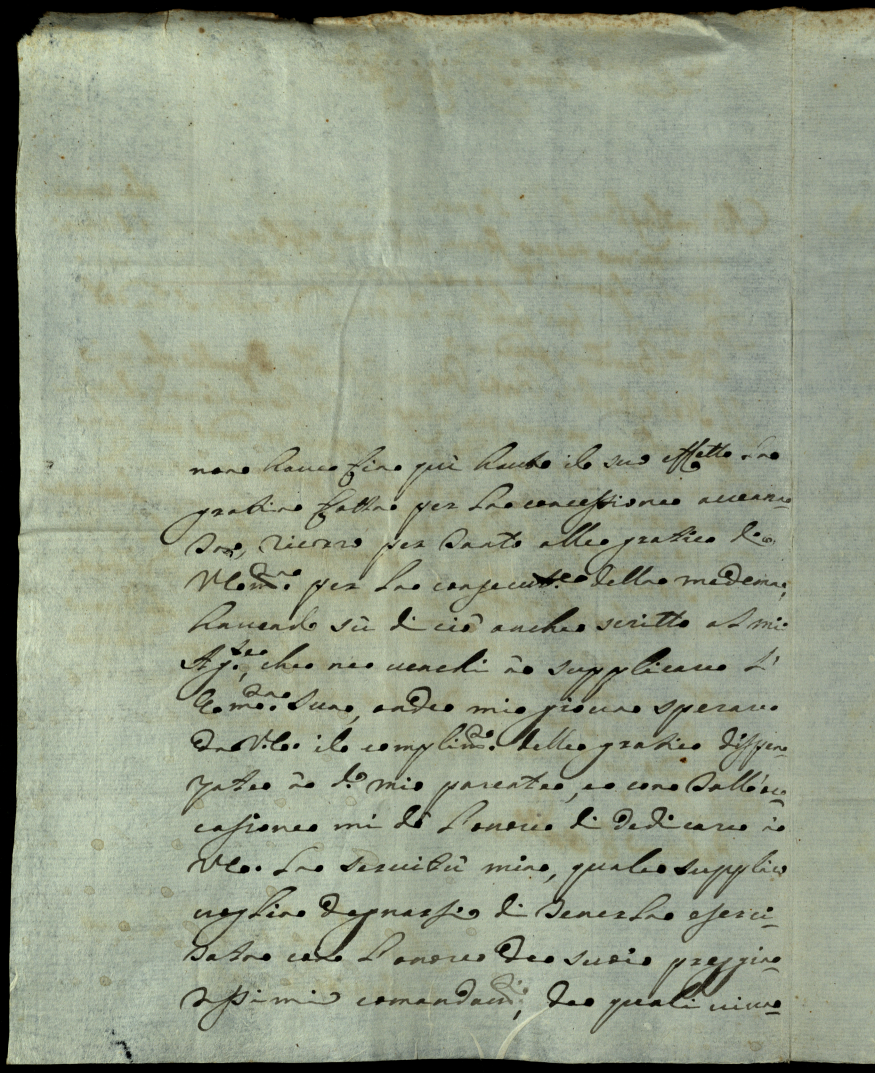 non haue fin quì hauto il suo effetto la
gratia fatta per la concessione accenna-
ta, ricorro per tanto alle gratie di
V. E. per la consecut.e della medema,
hauendo sù di ciò anche scritto al mio
Ag.te, che ne uenchi à supplicare l'
Sua, onde mi gioua sperare
da V. E. il complim.to delle gratie dispen-
zate à d.o mio parente, e con tall'oc-
casione mi dò l'onore di dedicare à
V. E. la seruitù mia, quale supplico
uoglia degnarsi di tenerla eserci-
tata con l'onore de suoi preggia-
tissimi comandam.ti, de quali uiuo